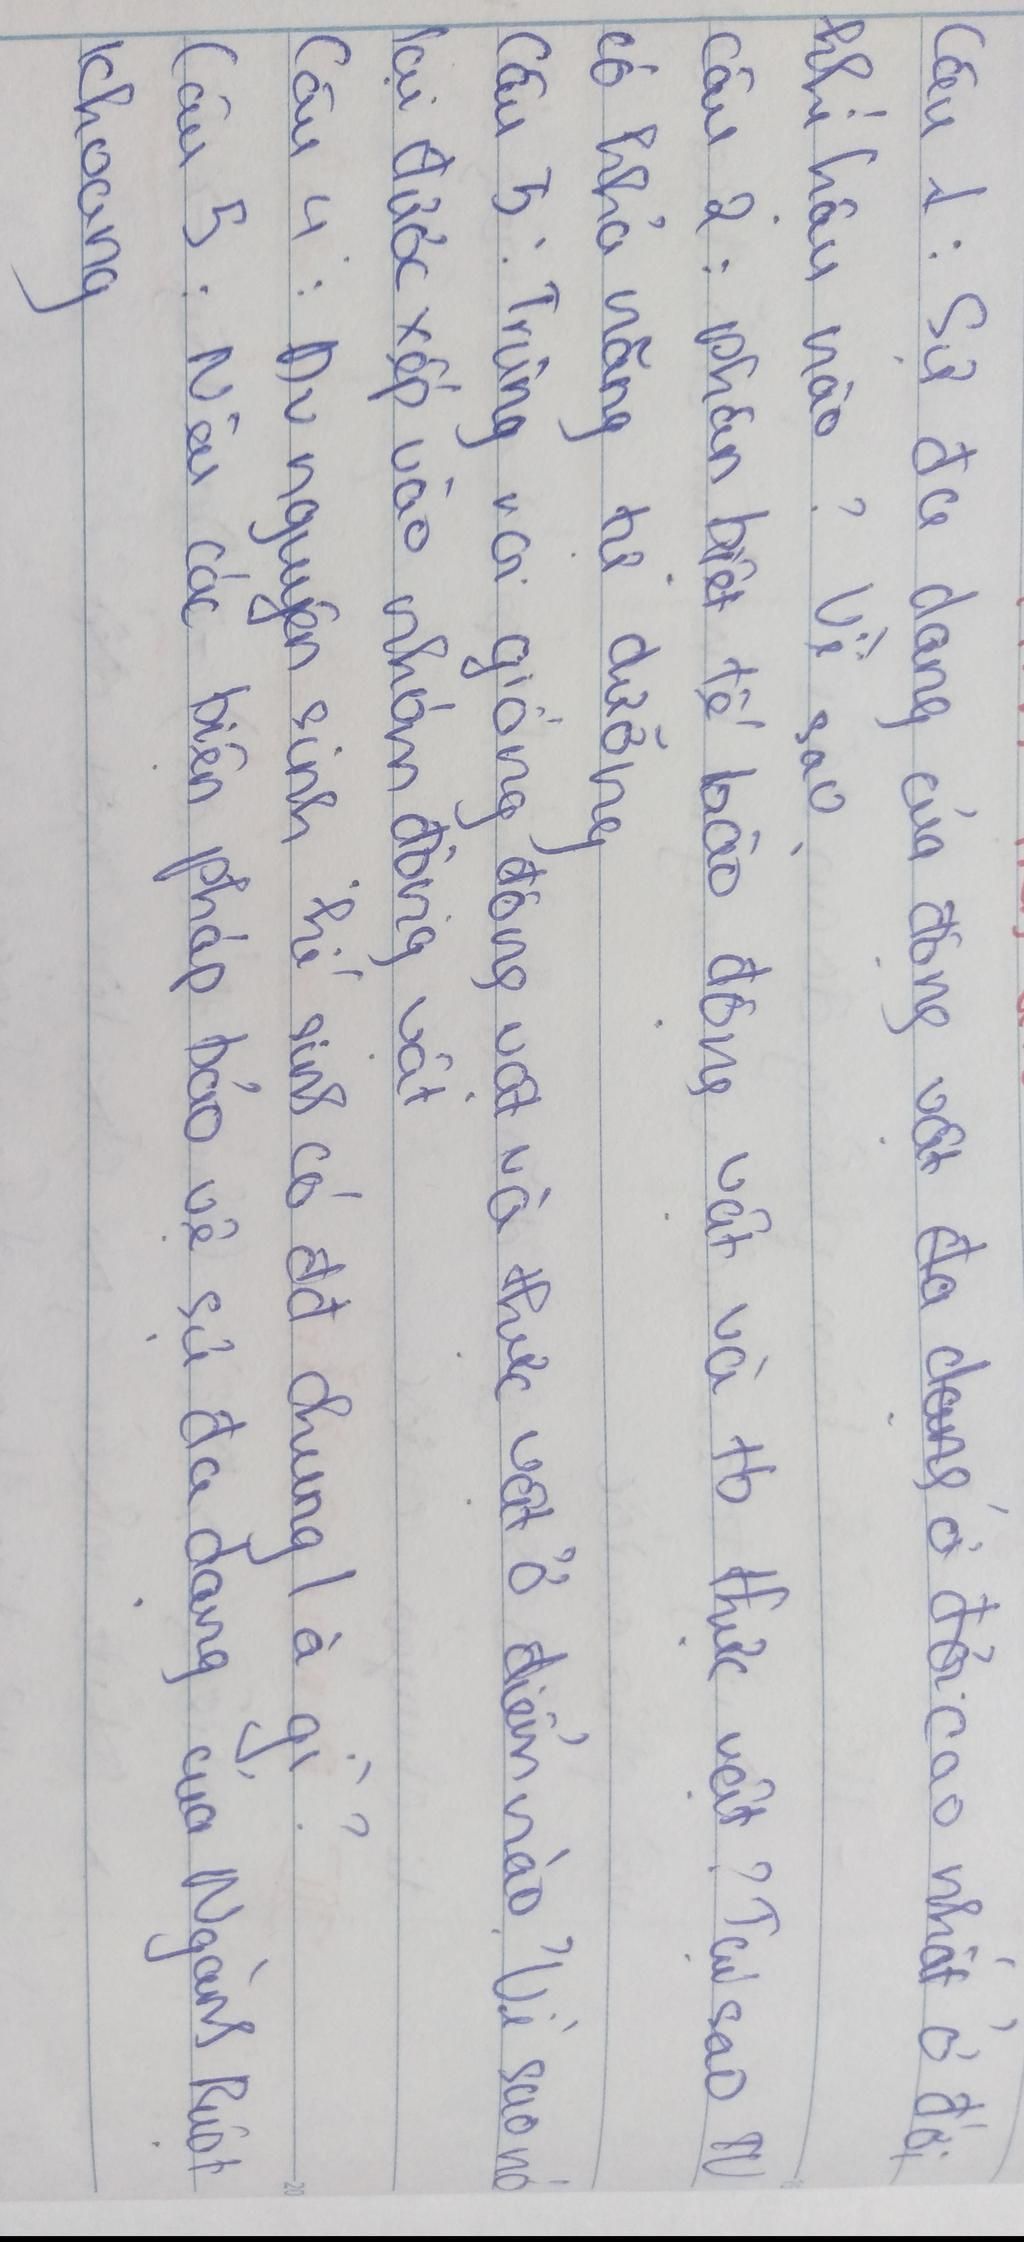 Câu 1: Sự đa dạng của động vật đa dạng ở đới cao nhất ở đới
khí hậu nào? Vì sao
Câu 2: phân biệt tế bào động vật và tb thực vật? Tại sao TV
có khả năng tự dưỡng
Câu 3: Trùng roi giống động vật và thực vật ở điểm nào? Vì sao nó
lại được xếp vào nhóm động vật
Câu 4: Đv nguyên sinh kí sinh có đđ chung là gì?
Câu 5: Nêu các biện pháp bảo vệ sự đa dạng của Ngành Ruột
khoang
20